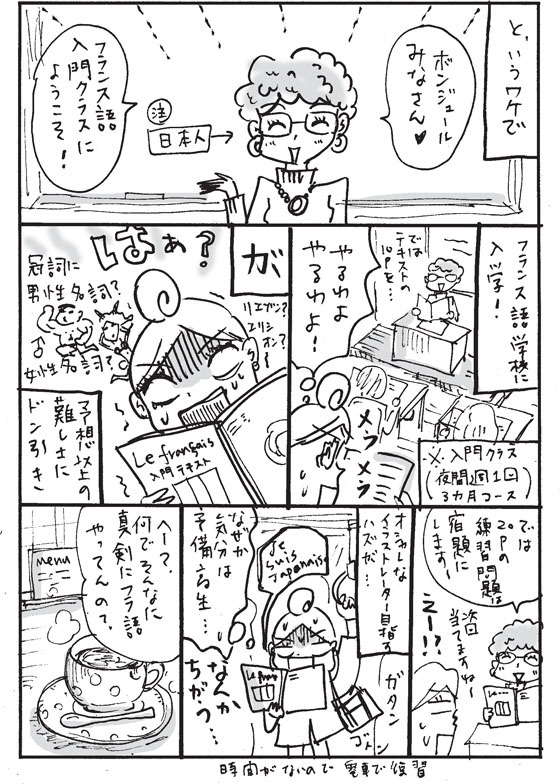 と、いうワケで
ボンジュール
みなさん♥
注
日本人
フランス語
入門クラスに
ようこそ!
フランス語学校に
入学!
では
テキストの
10Pを…
やるわよ
やるわよ!
メラメラ
※入門クラス
(夜間週1回
3カ月コース)
が
はぁ?
冠詞に
男性名詞?
♂
女性名詞?
リエゾン?
エリシ
オン?
Le français
入門テキスト
予想以上の
難しさに
ドン引き
では
20Pの
練習問題は
宿題に
します〜
次回
当てますね〜
えー!?
オシャレな
イラストレーター目指す
ハズだ…
Je
suis
Japonaise
ガタン
ゴトン
なぜか
気分は
予備校生…
なんか
ちがう…
へー?
何でそんなに
真剣にフラ語
やってんの?
menu
時間がないので電車で復習